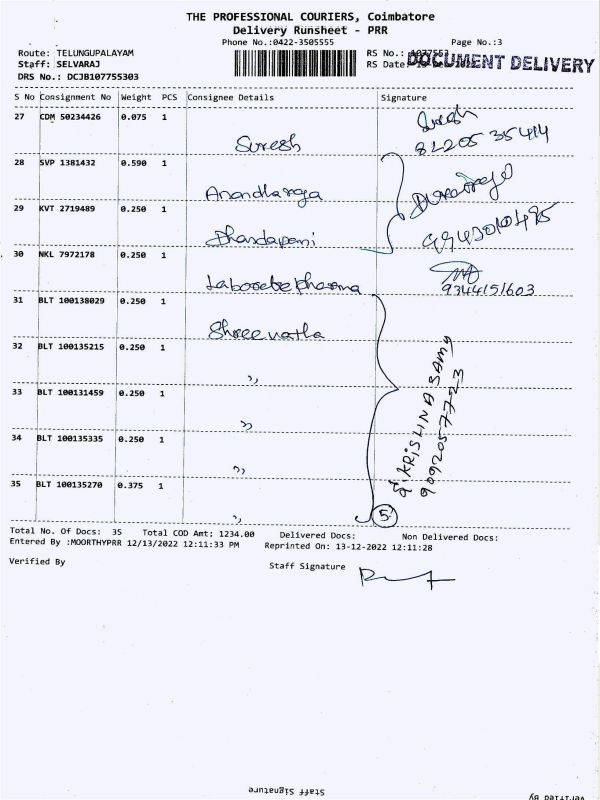 THE PROFESSIONAL COURIERS, Coimbatore
Delivery Runsheet - PRR
Phone No.:0422-3505555
Page No.:3
Route: TELUNGUPALAYAM
RS No.: 1077553
Staff: SELVARAJ
RS Date:
DOCUMENT DELIVERY
DRS No.: DCJB107755303
S No Consignment No Weight PCS Consignee Details Signature
27 CDM 50234426 0.075 1
Suresh
28 SVP 1381432 0.590 1
Anandharaja
29 KVT 2719489 0.250 1
Dhandapani
30 NKL 7972178 0.250 1
9344151603
31 BLT 100138029 0.250 1
32 BLT 100135215 0.250 1
"
33 BLT 100131459 0.250 1
"
34 BLT 100135335 0.250 1
"
35 BLT 100135270 0.375 1
"
KRISHNA SAMY
9092057723
5
Total No. Of Docs: 35 Total COD Amt; 1234.00 Delivered Docs: Non Delivered Docs:
Entered By :MOORTHYPRR 12/13/2022 12:11:33 PM Reprinted On: 13-12-2022 12:11:28
Verified By Staff Signature
Staff Signature
Verified By